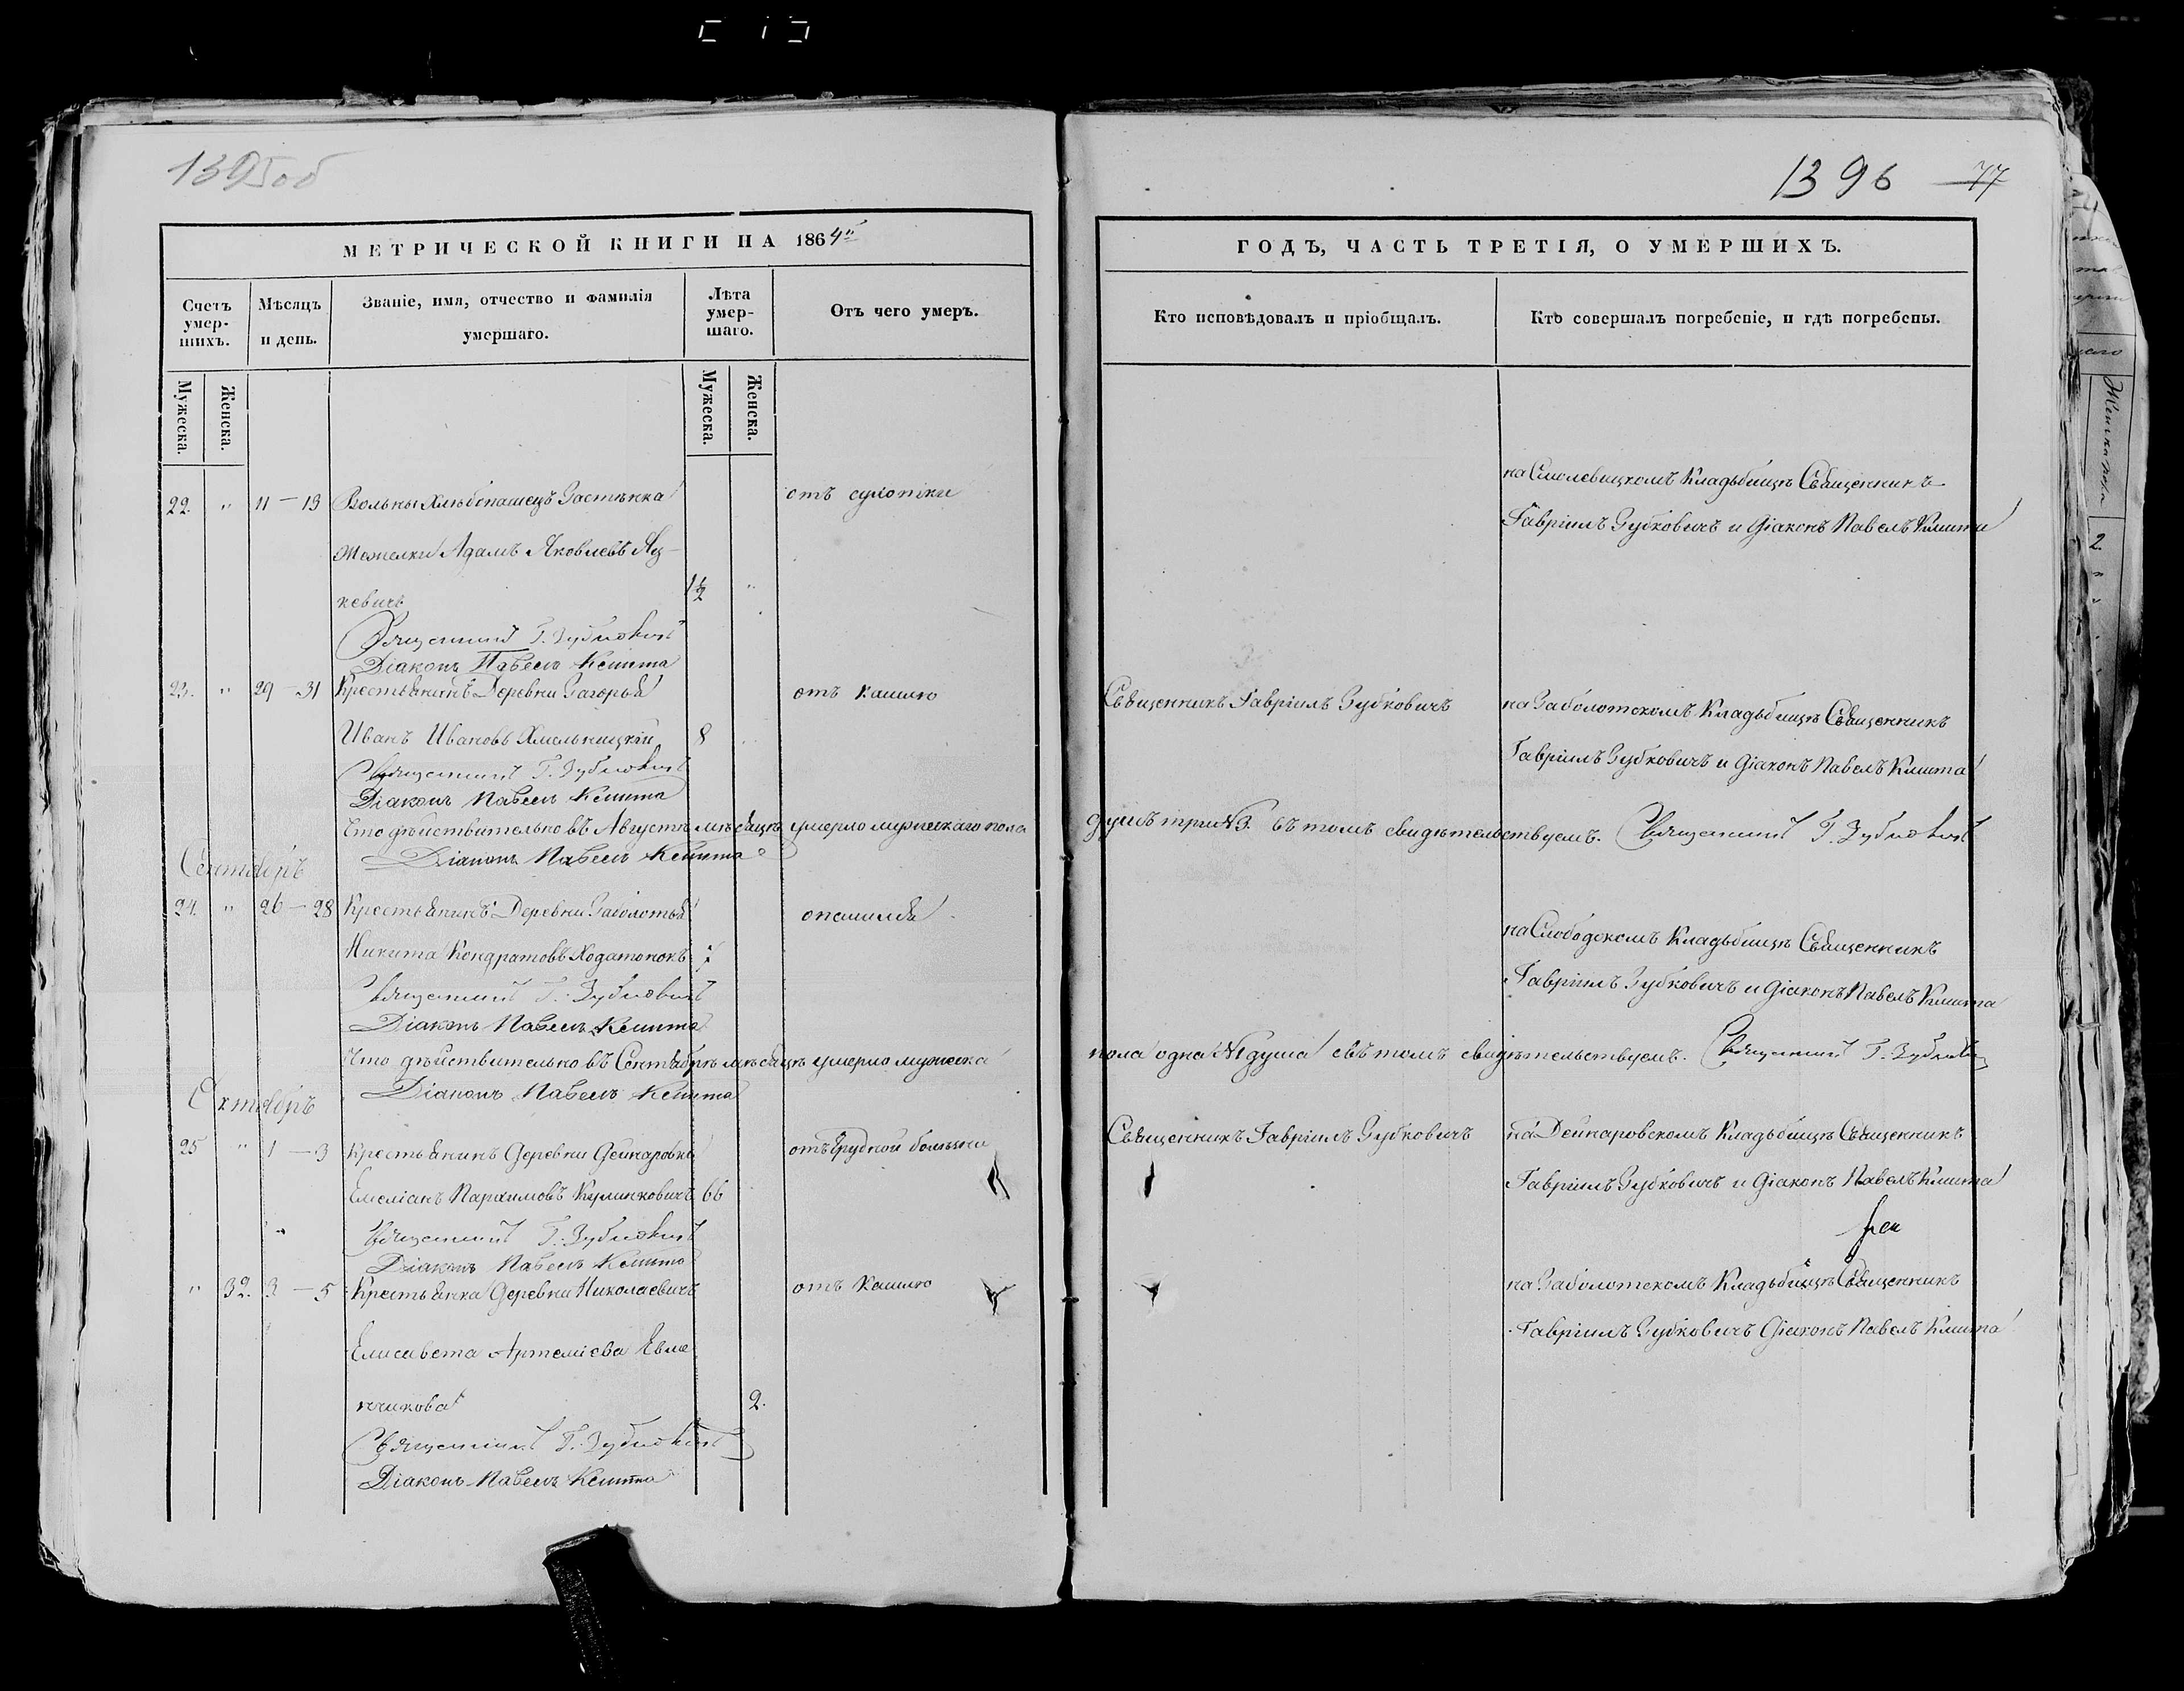 1395об
1396 77
МЕТРИЧЕСКОЙ КНИГИ НА 1864й
ГОДЪ, ЧАСТЬ ТРЕТІЯ, О УМЕРШИХЪ.
Счетъ умер-
шихъ.
Мѣсяцъ
и день.
Званіе, имя, отчество и фамилія
умершаго.
Лѣта
умер-
шаго.
Отъ чего умеръ.
Кто исповѣдовалъ и пріобщалъ.
Кто совершалъ погребеніе, и гдѣ погребены.
Мужеска. Женска.
Мужеска. Женска.
22. " 11 — 13 Вольны Хлѣбопашецъ Застѣнка
отъ сухотки
на Смолевицкомъ Кладьбищѣ Священникъ
Адамъ Яковлевъ Яц-
Гавріилъ Зубковичъ и Діаконъ Павелъ Клишта
кевичъ 1½ "
Священникъ Г. Зубковичъ
Діаконъ Павелъ Клишта
23. " 29 — 31 Крестьянинъ Деревни Загорья
отъ кашлю
Священникъ Гавріилъ Зубковичъ
на Заболотскомъ Кладьбищѣ Священникъ
Иванъ Ивановъ Хмельницкій 8
Гавріилъ Зубковичъ и Діаконъ Павелъ Клишта
Священникъ Г. Зубковичъ
Діаконъ Павелъ Клишта
Что дѣйствительно въ Августѣ мѣсяцѣ умерло мужескаго пола душъ три №3. въ томъ свидѣтельствуемъ. Священникъ Г. Зубковичъ
Діаконъ Павелъ Клишта
Сентябрь
24. " 26 — 28 Крестьянинъ Деревни Заболотья
на Слободскомъ Кладьбищѣ Священникъ
Никита Кондратовъ Ходатонокъ
Гавріилъ Зубковичъ и Діаконъ Павелъ Клишта
Священникъ Г. Зубковичъ
Діаконъ Павелъ Клишта
Что дѣйствительно въ Сентябрѣ мѣсяцѣ умерло мужеска пола одна №1 душа въ томъ свидѣтельствуемъ. Священникъ Г. Зубкович
Діаконъ Павелъ Клишта
Октябрь
25 " 1 — 3 Крестьянинъ Деревни Дейнаровки
отъ грудной болѣзни
Священникъ Гавріилъ Зубковичъ
на Дейнаровскомъ Кладьбищѣ Священникъ
Емеліанъ Пархимовъ Кулинковичъ 66
Гавріилъ Зубковичъ и Діаконъ Павелъ Клишта
Священникъ Г. Зубковичъ
Діаконъ Павелъ Клишта
" 32. 3 — 5 Крестьянка Деревни Николаевичъ
отъ кашлю
на Заболотскомъ Кладьбищѣ Священникъ
Елисавета Артеміева Евла
Гавріилъ Зубковичъ Діаконъ Павелъ Клишта
нчикова 2.
Священникъ Г. Зубковичъ
Діаконъ Павелъ Клишта